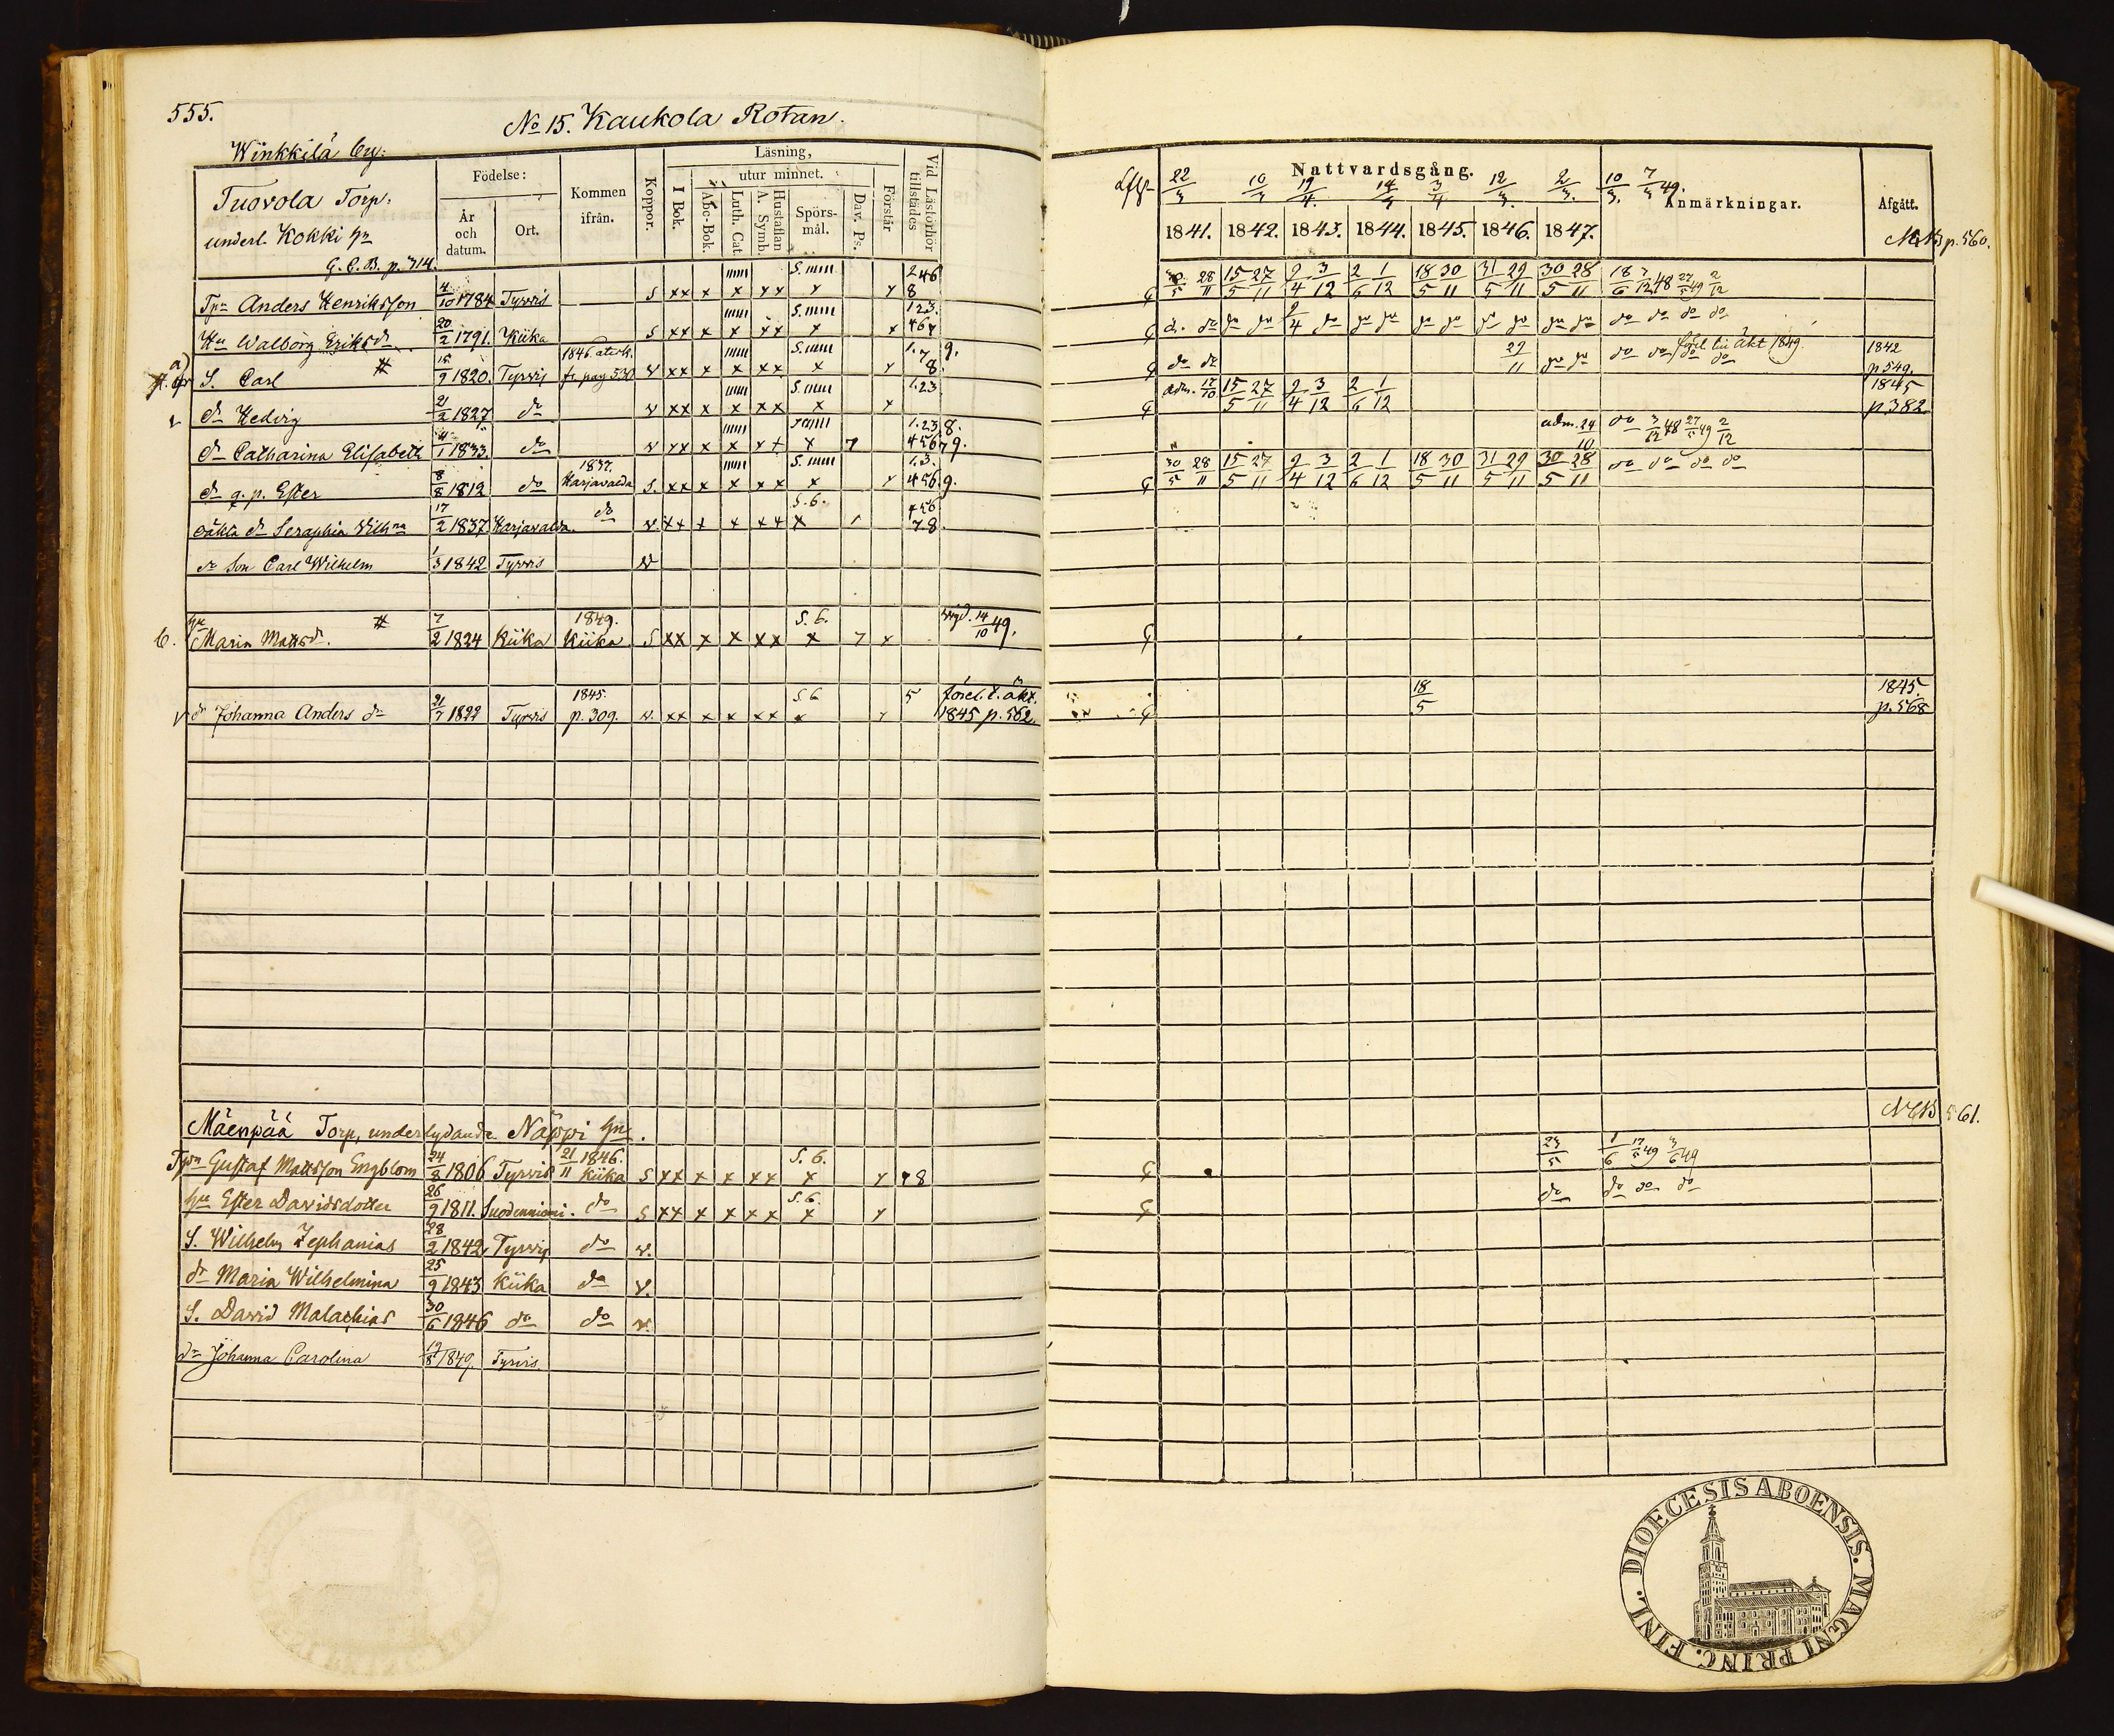 555.
No 15. Kaukola Rotan.
Winkkilä by:
Tuovola Torp.
underl. Kokki hn
G. C. B. p. 714.
Födelse:
År och datum.
Ort.
Kommen ifrån.
Koppor.
Läsning,
utur minnet.
I Bok.
Abc-Bok.
Luth. Cat.
Hustaflan A. Symb.
Spörsmål.
Dav. Ps.
Förstår
Vid Läsförhör tillstädes
Nattvardsgång.
22/3 10/3 19/4 14/3 3/4 12/3 2/3 10/3 7/3 49.
1841. 1842. 1843. 1844. 1845. 1846. 1847.
Anmärkningar.
Afgått.
p. 560.
Anders Henriksson 4/10 1784 Tyrvis S xx x x xx x x 246 8 28/11 15/5 27/11 9/4 3/12 2/6 1/12 18/5 30/11 31/5 29/11 30/5 28/11 18/6 3/12 48 27/5 49 2/12
Hu Walborg Eriksdr 20/2 1791. Kiika S xx x x xx x x 123. 467
a) S. Carl 15/9 1820. Tyrvis 1846. återk. fr pag 530 v xx x x xx x x 1.7 8. 9. do do 29/11 do do förel. till äkt 1849. 1842 p 549.
dr Hedvig 21/2 1827 do v xx x x xx x x 1.23 adm. 17/10 15/5 27/11 9/4 3/12 2/6 1/12 1845 p 382
dr Catharina Elisabeth 4/1 1833. do v xx x x xx x 7 1.23 8. 456 79. adm. 24/10 do 3/12 48 27/5 49 2/12
dr q. p. Ester 8/8 1812 do 1837. Harjavalda S. xx x x xx x x 1.3. 456 9. 30/5 28/11 15/5 27/11 9/4 3/12 2/6 1/12 18/5 30/11 31/5 29/11 30/5 28/11 do do do do
oäkta dr Seraphia Vilhna 17/2 1837 Harjavalda do v xx x x xx x S. 6. 456 78
dr son Carl Wilhelm 1/3 1842 Tyrvis v
b. hu Maria Mattsdr. 7/2 1824 Kiika 1849. Kiika S xx x x xx x 7 x S. 6. vigd. 14/10 49.
dr Johanna Anders dr 21/7 1822 Tyrvis 1845. p. 309. v. xx x x xx x S. 6 5 förel. t. äkt. 1845 p. 562 18/5 1845. p. 568
Mäenpää Torp, underlydande Näppi hn.
561.
Gustaf Mattsson Engblom 24/8 1806 Tyrvis 21/11 1846. Kiika S xx x x xx x x S. 6. 8 23/5 1/6 17/5 49 3/6 49
hu Ester Davidsdotter 26/9 1811. Suodenniemi. do S xx x x xx x x S. 6 do do do do
S. Wilhelm Zephanias 28/2 1842. Tyrvis do v.
dr Maria Wilhelmina 25/9 1843 Kiika do v.
S. David Malachias 30/6 1846 do do v.
dr Johanna Carolina 19/8 1849. Tyrvis.
DIOECESIS ABOENSIS. MAGNI PRINC. FINL.